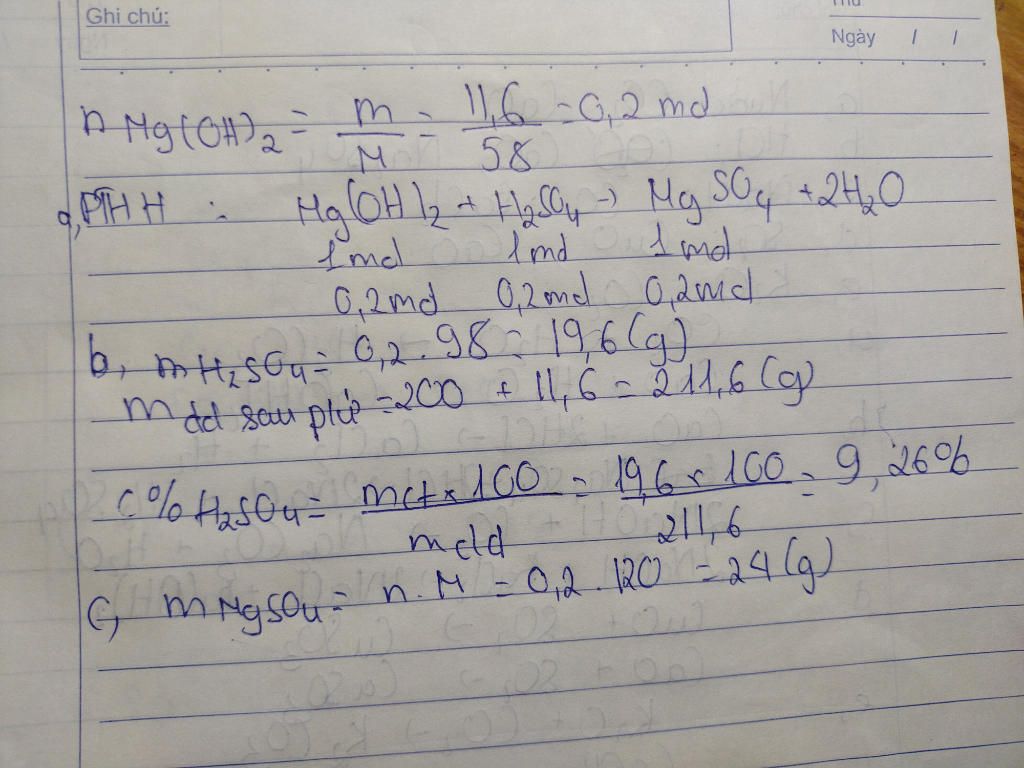 Ghi chú:
Thứ
Ngày / /
n Mg(OH)2 = m/M = 11,6/58 = 0,2 mol
a, PTHH : Mg(OH)2 + H2SO4 → MgSO4 + 2H2O
1mol 1mol 1mol
0,2mol 0,2mol 0,2mol
b, m H2SO4 = 0,2 . 98 = 19,6 (g)
m dd sau pứ = 200 + 11,6 = 211,6 (g)
C% H2SO4 = mct x 100/mdd = 19,6 x 100/211,6 = 9,26%
c, m MgSO4 = n . M = 0,2 . 120 = 24 (g)